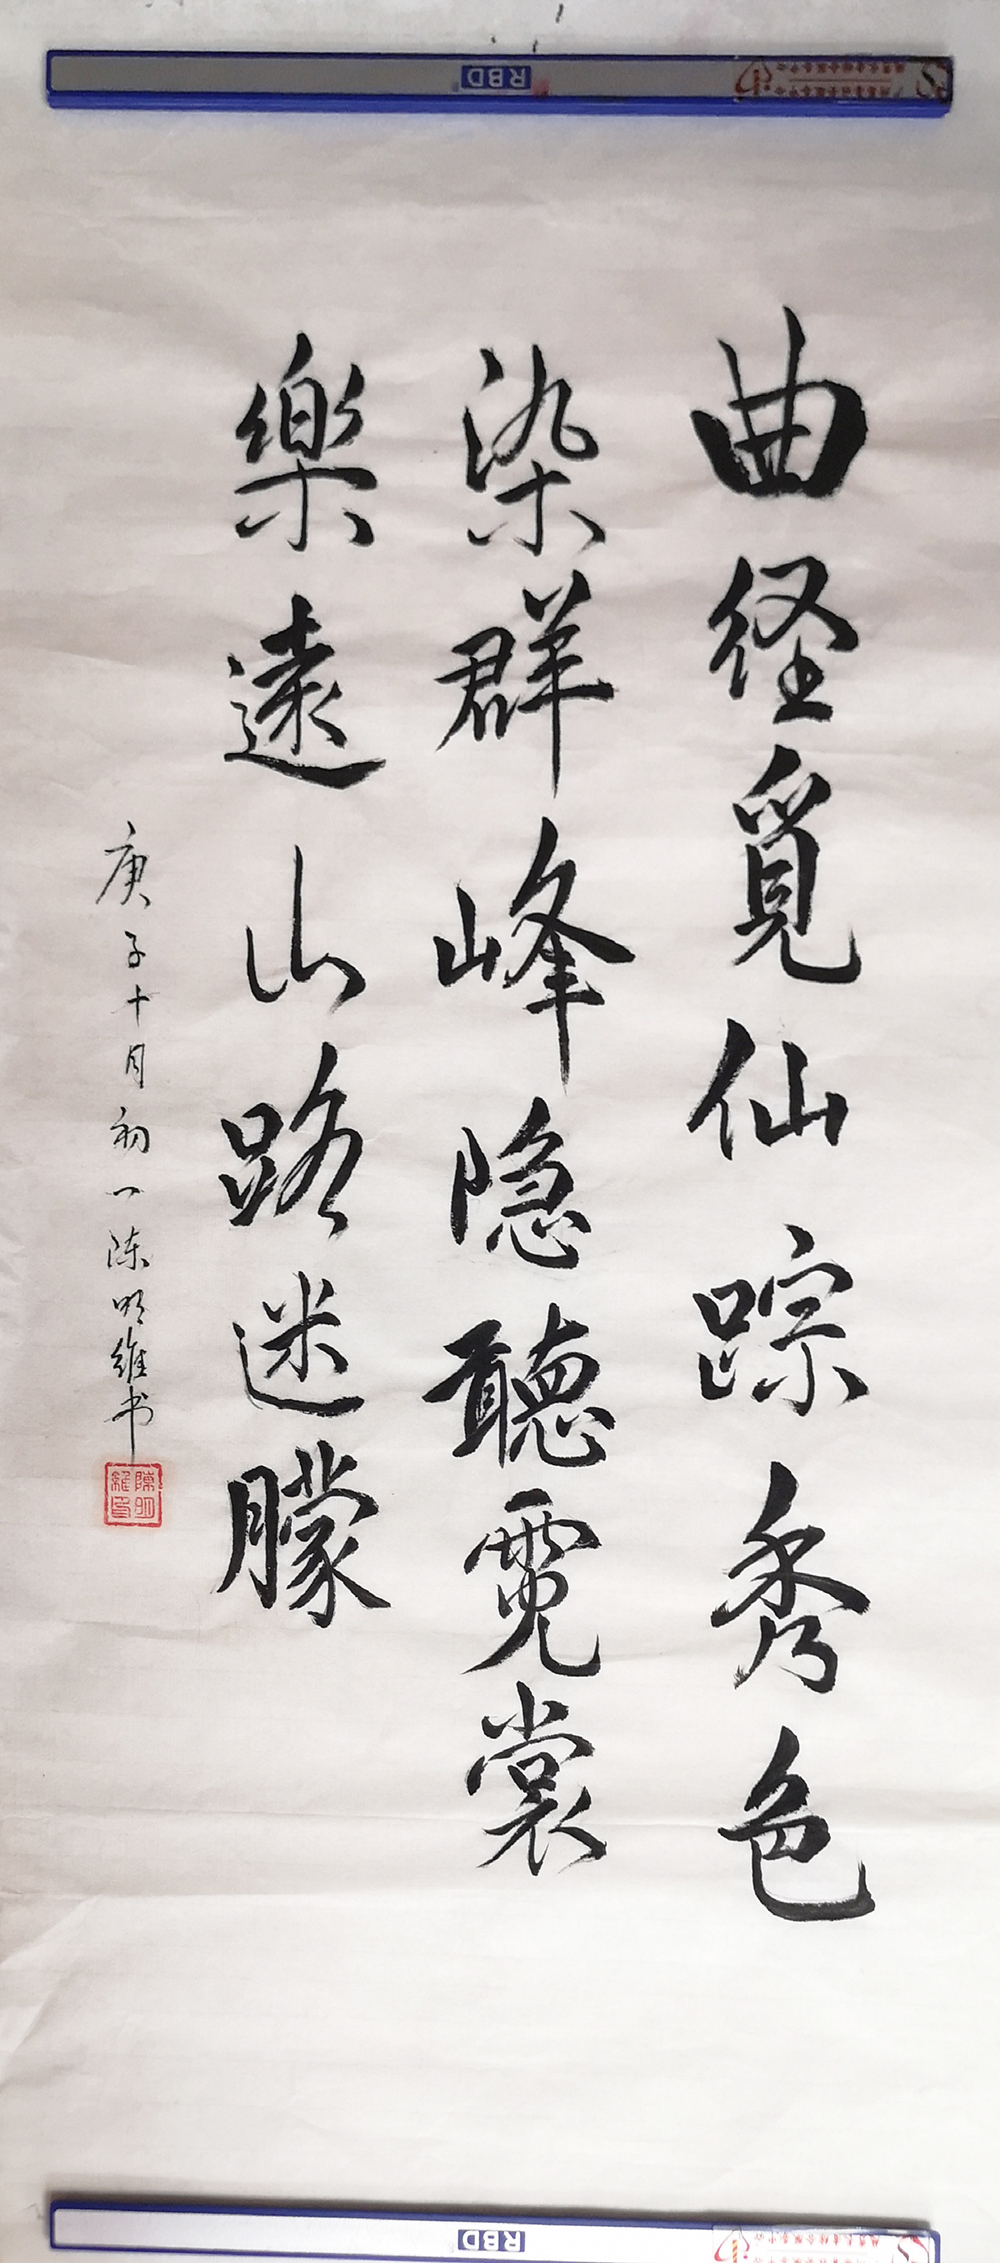 曲径觅仙踪秀色
染群峰隐聽霓裳
樂遠山路迷朦
庚子十月初一陈明维书
陳明維印
RBD
RBD